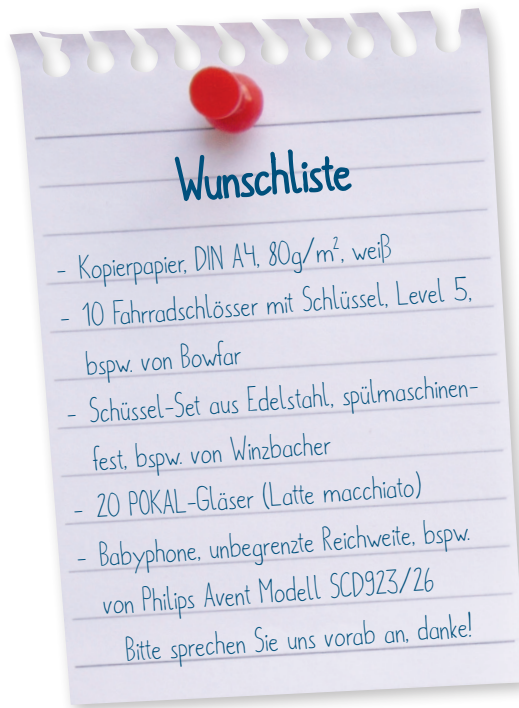 Wunschliste
- Kopierpapier, DIN A4, 80g/m², weiß
- 10 Fahrradschlösser mit Schlüssel, Level 5,
bspw. von Bowfar
- Schüssel-Set aus Edelstahl, spülmaschinen-
fest, bspw. von Winzbacher
- 20 POKAL-Gläser (Latte macchiato)
- Babyphone, unbegrenzte Reichweite, bspw.
von Philips Avent Modell SCD923/26
Bitte sprechen Sie uns vorab an, danke!